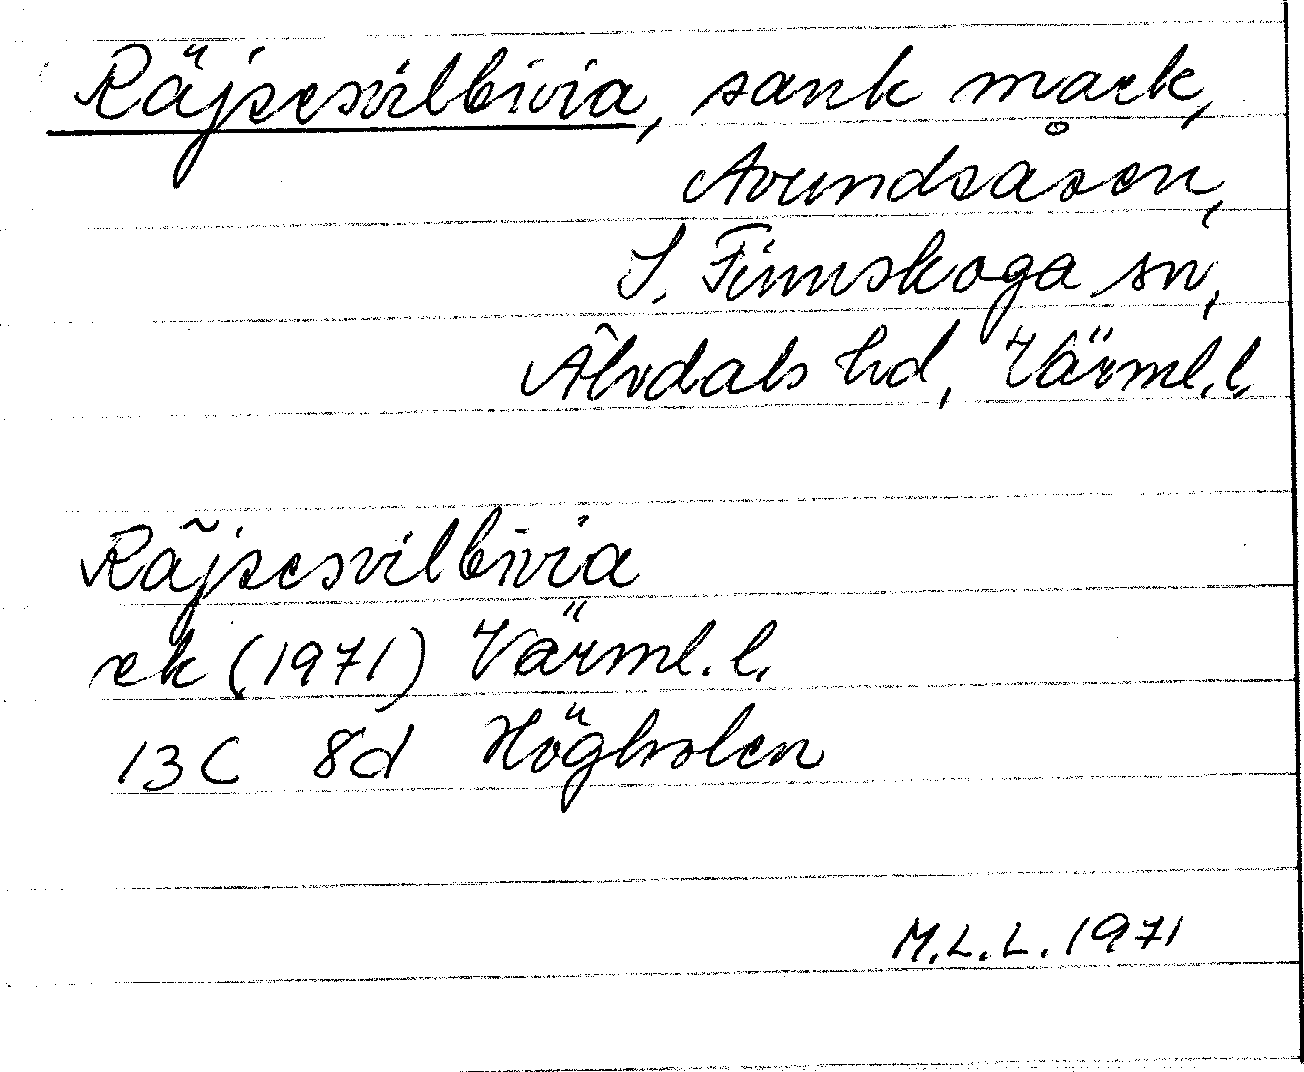 Räjsesvilbivia, sank mark,
Avundsåsen,
S. Finnskoga sn,
Älvdals hd, Värml.l.
Räjsesvilbivia
ek (1971) Värml.l.
13C 8d Högholen
M.L.L. 1971